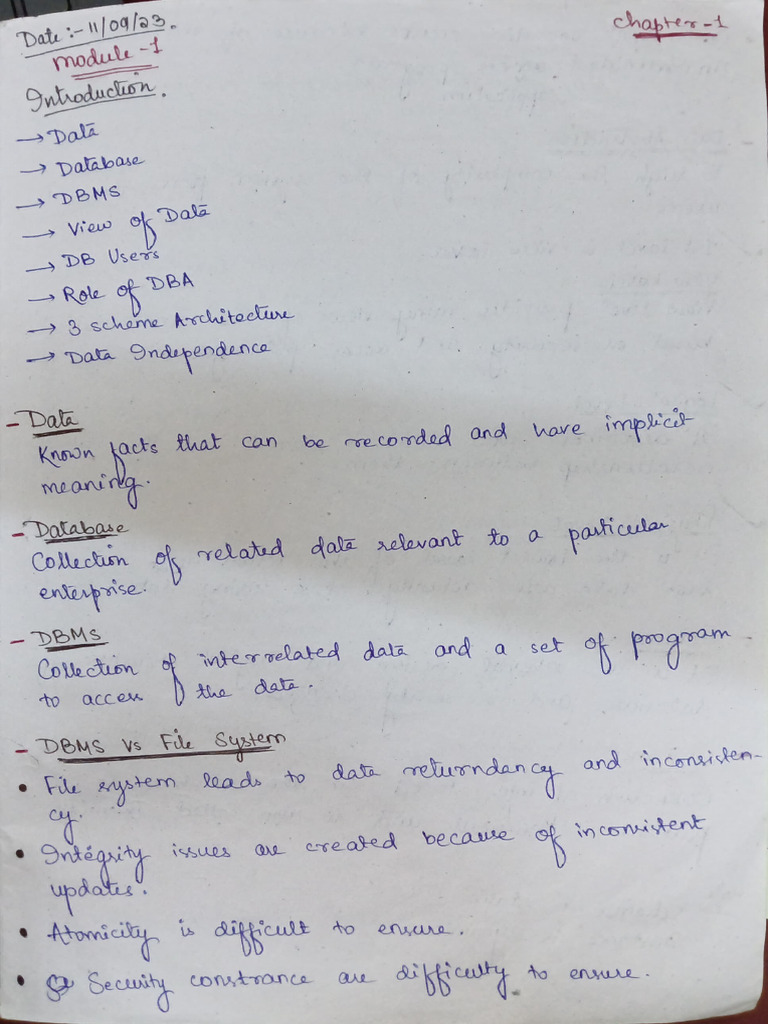 Date:- 11/09/23.
Chapter-1
Module-1
Introduction.
→ Data
→ Database
→ DBMS
→ View of Data
→ DB Users
→ Role of DBA
→ 3 scheme Architecture
→ Data Independence
- Data
Known facts that can be recorded and have implicit
meaning.
- Database
Collection of related data relevant to a particular
enterprise.
- DBMS
Collection of interrelated data and a set of program
to access the data.
- DBMS Vs File System
• File system leads to data returndancy and inconsisten-
cy.
• Integrity issues are created because of inconsistent
updates.
• Atomicity is difficult to ensure.
• Security constrance are difficulty to ensure.